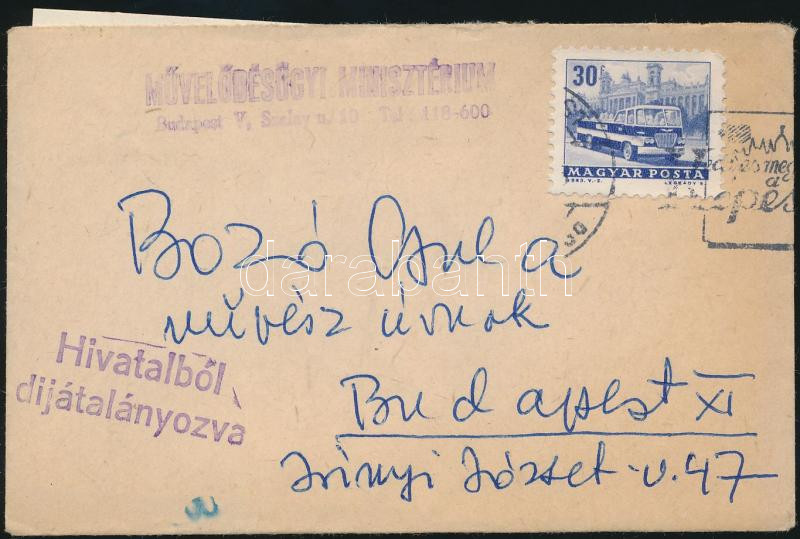 MŰVELŐDÉSÜGYI MINISZTÉRIUM
Budapest V, Szalay u. 10 Tel: 118-600
30f
MAGYAR POSTA
LÉGRÁDY S.
Bozó Gyula
művész úrnak
Budapest XI
Irinyi József-u. 47
Hivatalból
díjátalányozva
darabanth